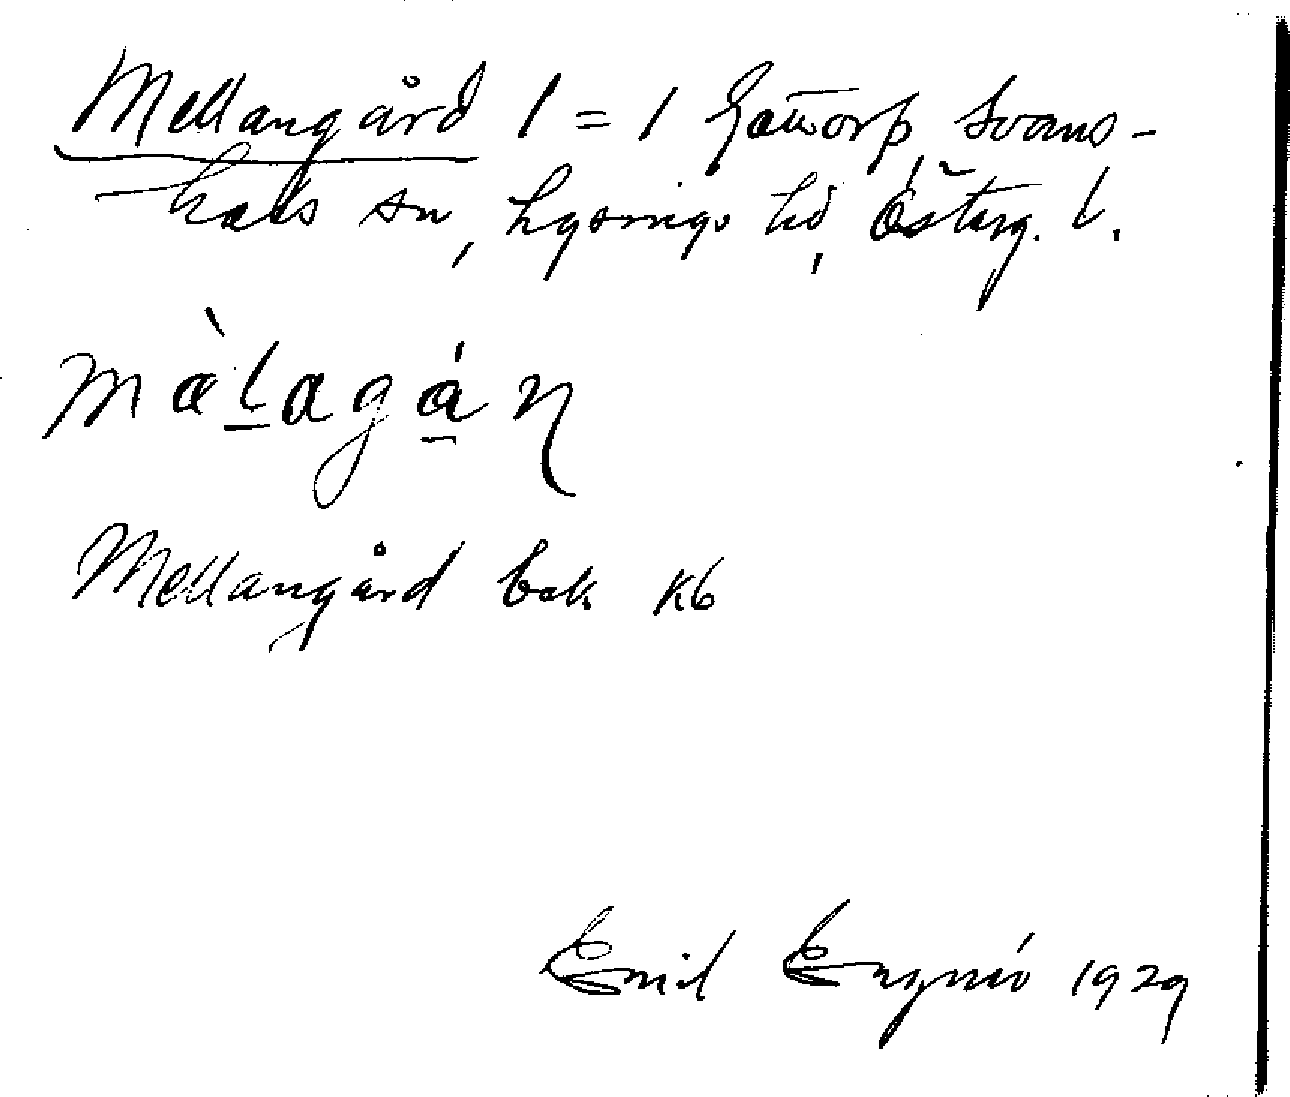 Mellangård 1 = 1 Gattorp, Svans-
hals sn, Lysings hd, Österg. l.
màlagán
Mellangård bok kb
Emil Engnér 1929